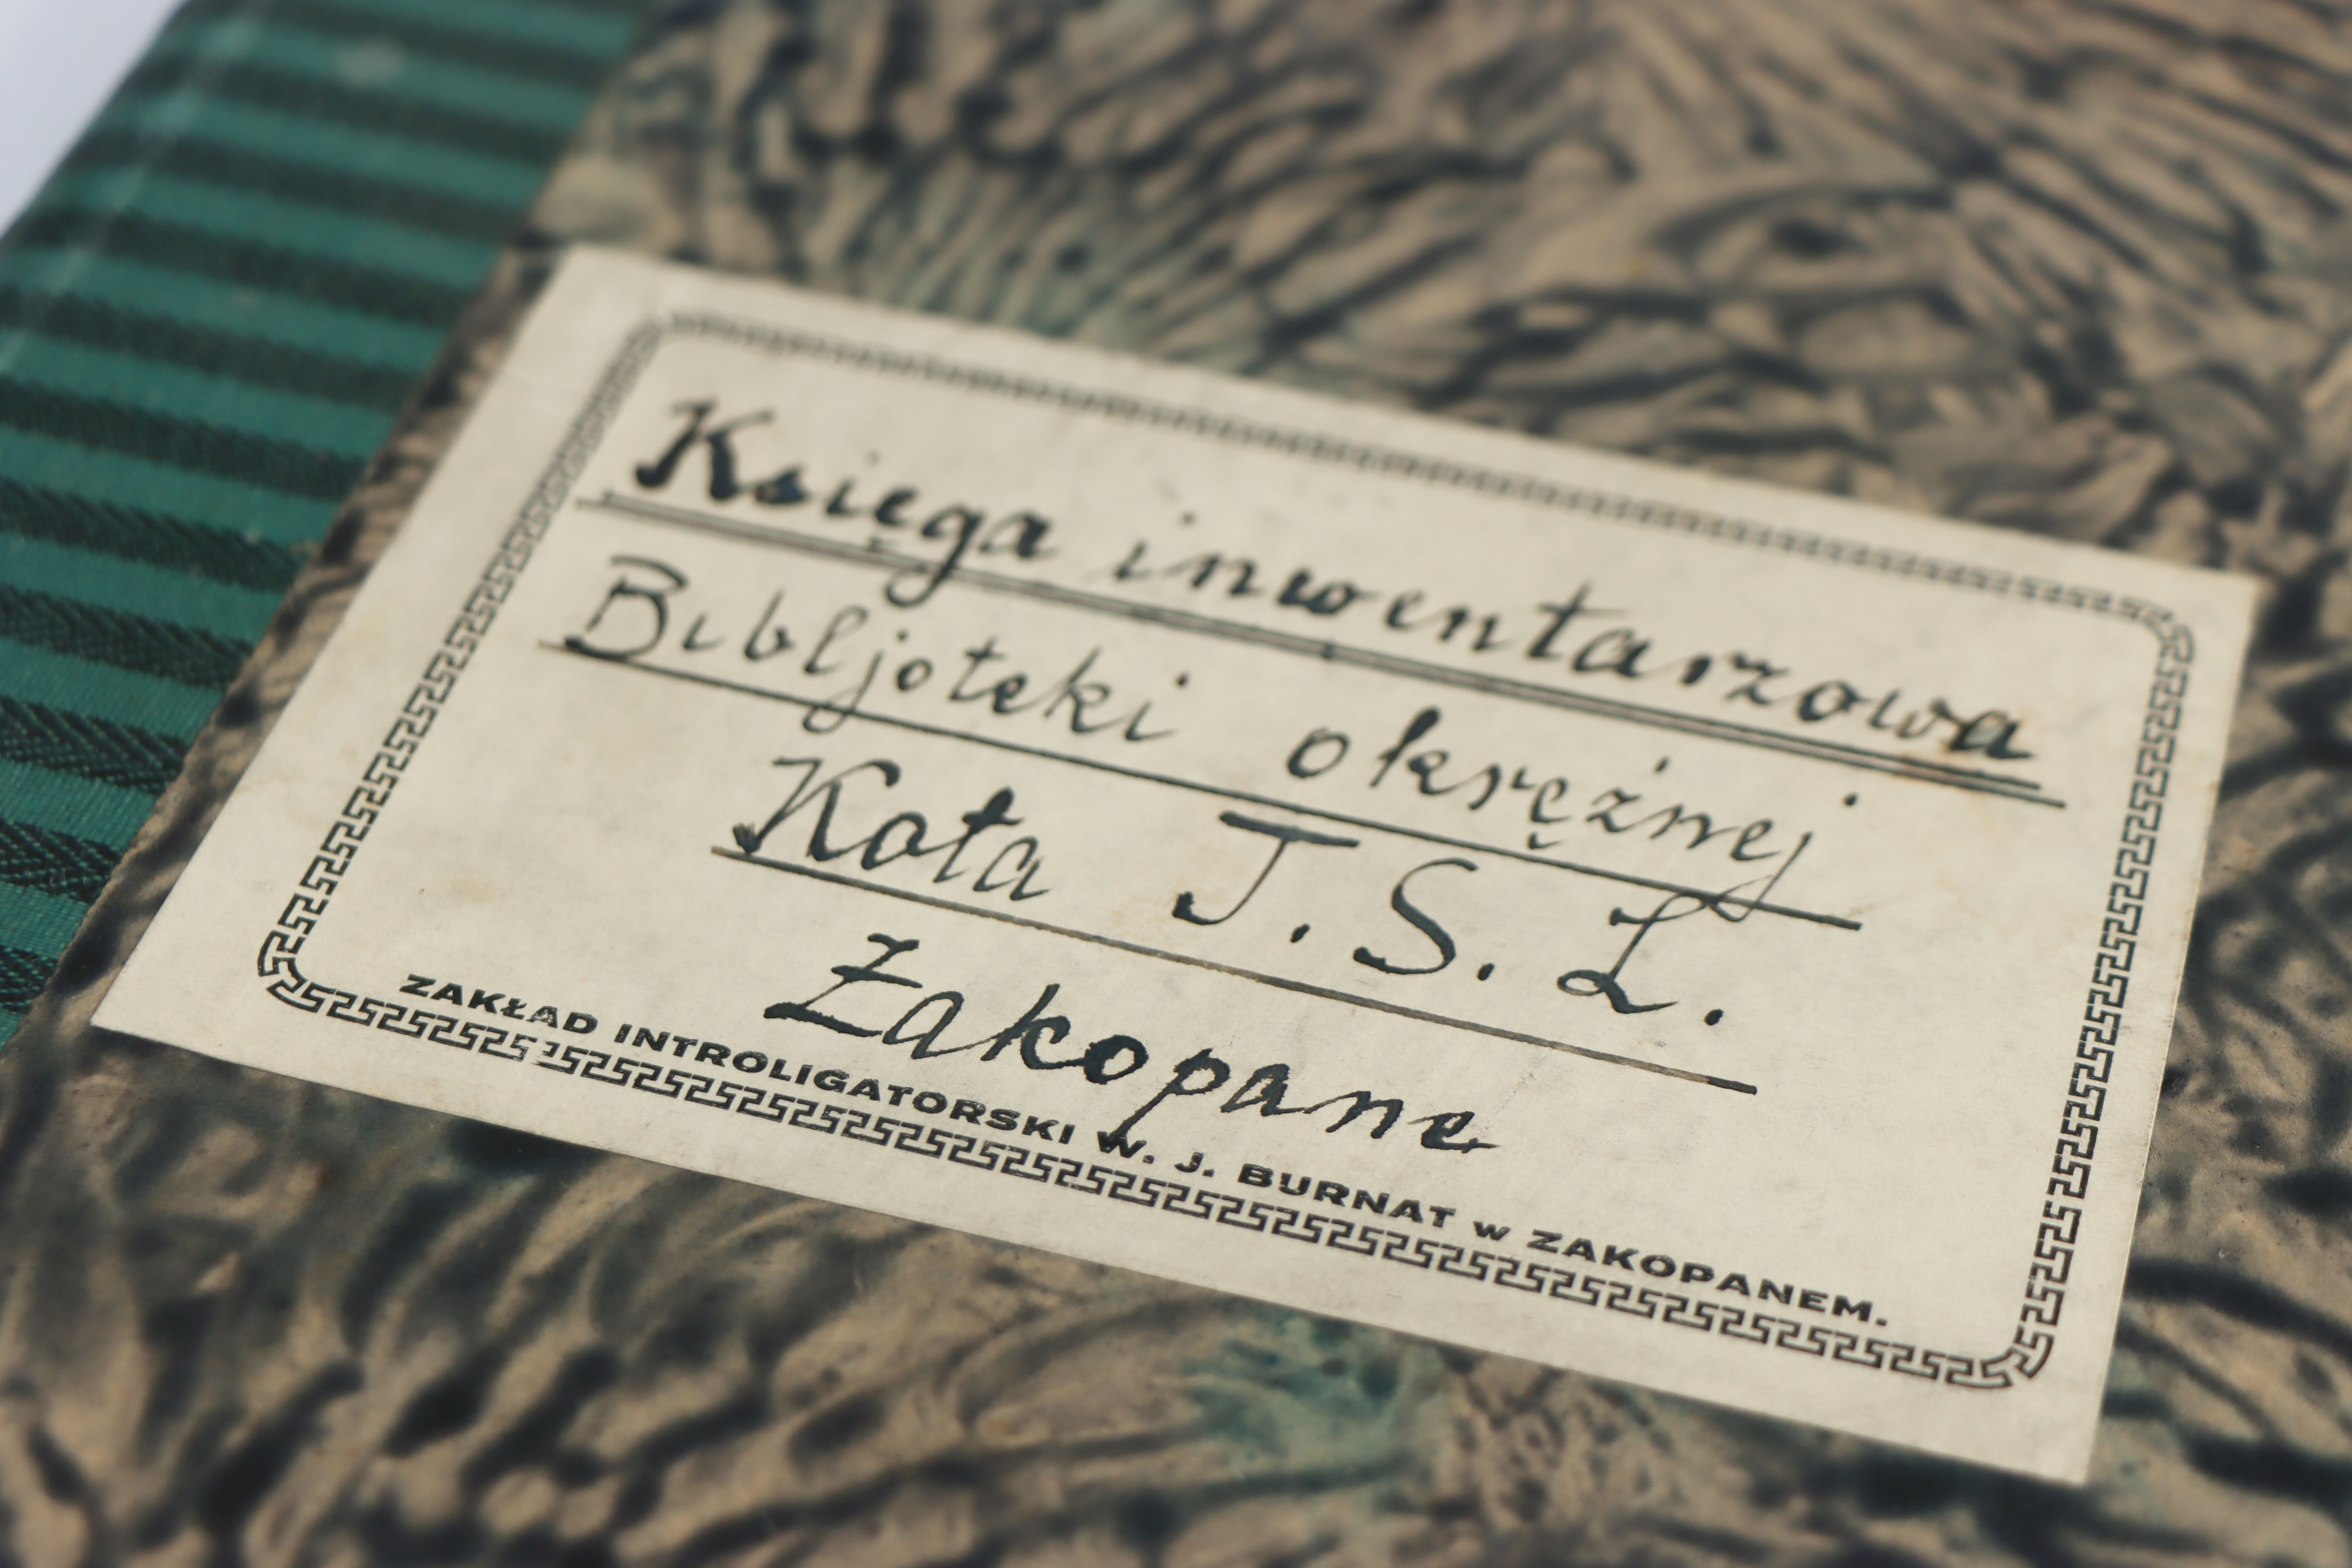 Księga inwentarzowa
Bibljoteki okrężnej
Koła T. S. L.
Zakopane
ZAKŁAD INTROLIGATORSKI W. J. BURNAT w ZAKOPANEM.